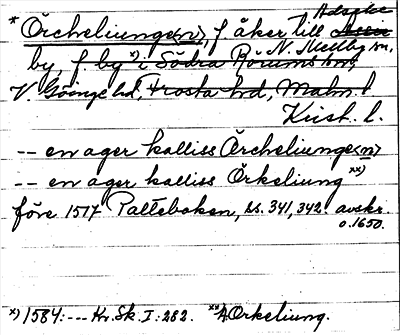 Adseke
* Örcheliunge<n>, f. åker till Assie
N. Mellby sn,
by, f. by *) i Södra Rörums sn,
V. Göinge hd, Frosta hd, Malm. l.
Krist. l.
-- en ager kalliss Örcheliunge<n>
-- en ager kalliss Örkeliung **)
före 1517 Palteboken, ss. 341, 342. avskr.
o. 1650.
*) 1584: --- Kr. Sk. I: 282. **) Orkeliung.